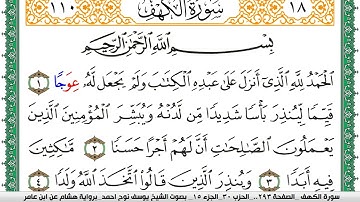 ١١٠ سُورَةُ الكَهْفِ ١٨
بِسْمِ اللَّهِ الرَّحْمَٰنِ الرَّحِيمِ
الْحَمْدُ لِلَّهِ الَّذِي أَنزَلَ عَلَىٰ عَبْدِهِ الْكِتَابَ وَلَمْ يَجْعَل لَّهُ عِوَجًا ١
قَيِّمًا لِّيُنذِرَ بَأْسًا شَدِيدًا مِّن لَّدُنْهُ وَيُبَشِّرَ الْمُؤْمِنِينَ الَّذِينَ
يَعْمَلُونَ الصَّالِحَاتِ أَنَّ لَهُمْ أَجْرًا حَسَنًا ٢ مَّاكِثِينَ
فِيهِ أَبَدًا ٣ وَيُنذِرَ الَّذِينَ قَالُوا اتَّخَذَ اللَّهُ وَلَدًا ٤
سورة الكهف الصفحة ٢٩٣.. الحزب ٣٠ الجزء ١٥ بصوت الشيخ يوسف نوح احمد برواية هشام عن ابن عامر